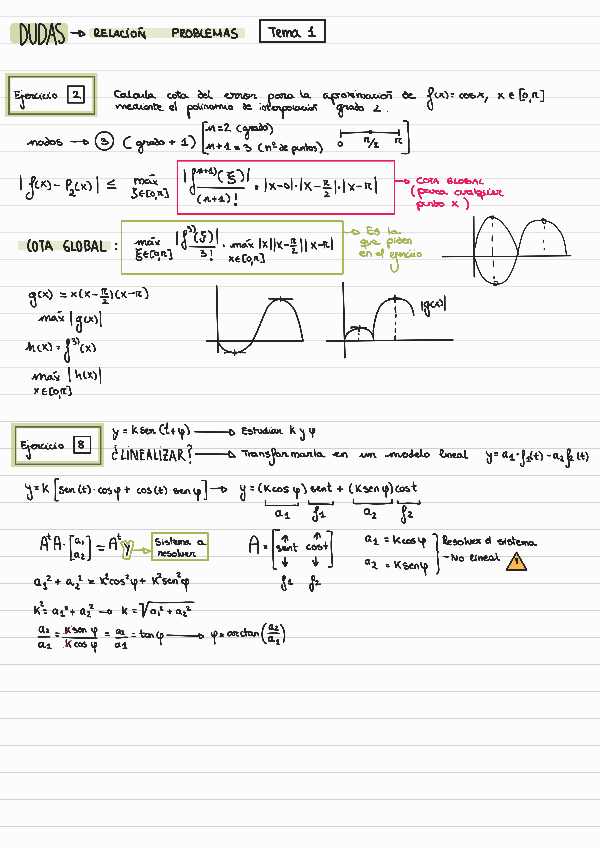 DUDAS → RELACIÓN PROBLEMAS Tema 1
Ejercicio 2 Calcula cota del error para la aproximación de f(x) = cosx, x ∈ [0,π]
mediante el polinomio de interpolación grado 2.
nodos → 3 (grado + 1) [n=2 (grado)
n+1 = 3 (nº de puntos)] 0 π/2 π
|f(x) - P₂(x)| ≤ máx ξ∈[0,π] |f^(n+1)(ξ)| / (n+1)! · |x-0|·|x-π/2|·|x-π| → COTA GLOBAL
(para cualquier
punto x)
COTA GLOBAL : máx ξ∈[0,π] |f³⁾(ξ)| / 3! · máx x∈[0,π] |x||x-π/2||x-π| → Es la
que piden
en el ejercicio
g(x) = x(x-π/2)(x-π)
máx |g(x)|
|g(x)|
h(x) = f³⁾(x)
máx |h(x)|
x∈[0,π]
Ejercicio 8 y = K sen(t+φ) → Estudiar K y φ
¿LINEALIZAR? → Transformarla en un modelo lineal y = a₁·f₁(t) - a₂f₂(t)
y = K [sen(t)·cosφ + cos(t)·senφ] → y = (Kcosφ)sent + (Ksenφ)cost
a₁ f₁ a₂ f₂
AᵗA·[a₁ a₂] = Aᵗy → Sistema a
resolver
A = [↑ sent ↓ ↑ cost ↓]
f₁ f₂
a₁ = Kcosφ
a₂ = Ksenφ
Resolver el sistema
- No lineal !
a₁² + a₂² = K²cos²φ + K²sen²φ
K² = a₁² + a₂² → K = √(a₁² + a₂²)
a₂/a₁ = Ksenφ/Kcosφ = a₂/a₁ = tanφ → φ = arctan(a₂/a₁)